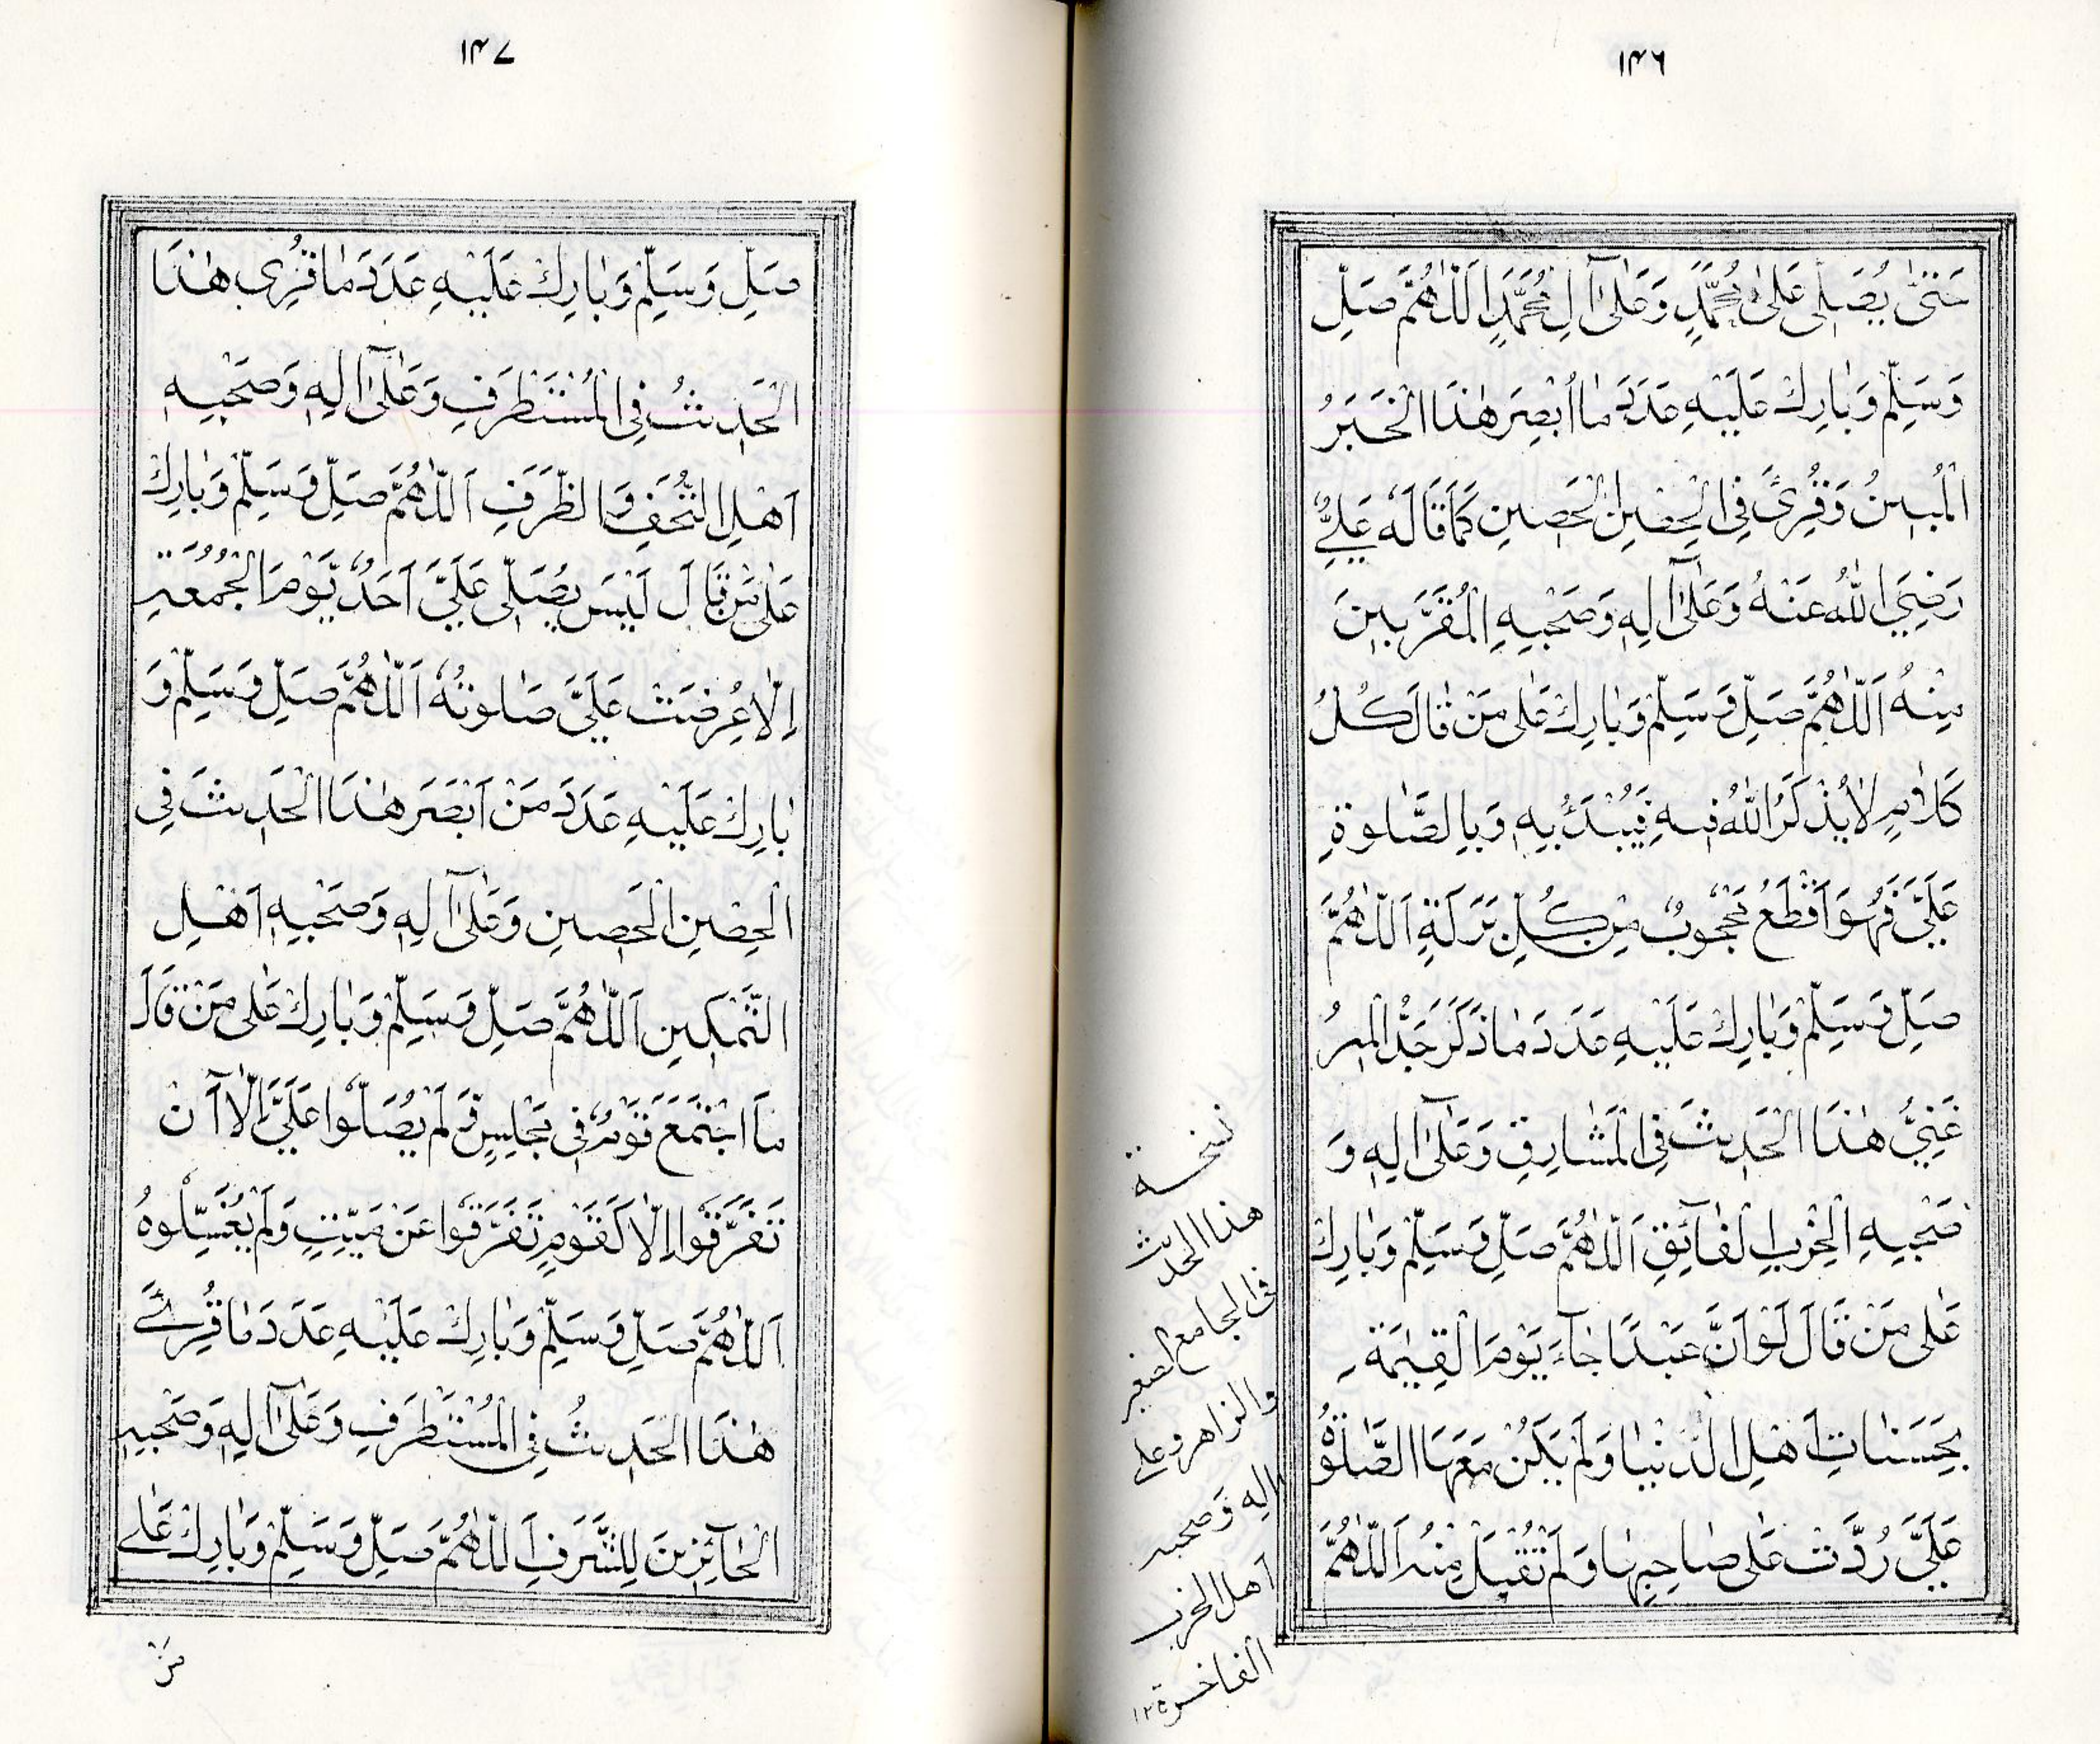 ١٤٦
حَتّٰى يُصَلِّىَ عَلٰى مُحَمَّدٍ وَعَلٰٓى اٰلِ مُحَمَّدٍ اَللّٰهُمَّ صَلِّ
وَسَلِّمْ وَبَارِكْ عَلَيْهِ عَدَدَ مَا اُبْصِرَ هٰذَا الْخَبَرُ
الْمُبِينُ وَقُرِئَ فِي الْحِصْنِ الْحَصِينِ كَمَا قَالَهٗ عَلِيٌّ
رَضِيَ اللّٰهُ عَنْهُ وَعَلٰٓى اٰلِهٖ وَصَحْبِهِ الْمُقَرَّبِينَ
مِنْهُ اَللّٰهُمَّ صَلِّ وَسَلِّمْ وَبَارِكْ عَلٰى مَنْ قَالَ كُلُّ
كَلَامٍ لَا يُذْكَرُ اللّٰهُ فِيهِ فَيُبْدَءُ بِهٖ وَبِالصَّلٰوةِ
عَلَيَّ فَهُوَ اَقْطَعُ مَحْجُوبٌ مِنْ كُلِّ بَرَكَةٍ اَللّٰهُمَّ
صَلِّ وَسَلِّمْ وَبَارِكْ عَلَيْهِ عَدَدَ مَا ذَكَرَ جَدُّ الْمِيرُ
غَنِيُّ هٰذَا الْحَدِيثَ فِي الْمَشَارِقِ وَعَلٰٓى اٰلِهٖ وَ
صَحْبِهِ الْحِزْبِ الْفَآئِقِ اَللّٰهُمَّ صَلِّ وَسَلِّمْ وَبَارِكْ
عَلٰى مَنْ قَالَ لَوْ اَنَّ عَبْدًا جَآءَ يَوْمَ الْقِيٰمَةِ
بِحَسَنَاتِ اَهْلِ الدُّنْيَا وَلَمْ يَكُنْ مَعَهَا الصَّلٰوةُ
عَلَيَّ رُدَّتْ عَلٰى صَاحِبِهَا وَلَمْ تُقْبَلْ مِنْهُ اَللّٰهُمَّ
نسخة
هذا الحديث
فى الجامع الصغير
والزاهر وعلى
اله وصحبه
اهل الحزب
الفاخرة ١٢
١٤٧
صَلِّ وَسَلِّمْ وَبَارِكْ عَلَيْهِ عَدَدَ مَا قُرِئَ هٰذَا
الْحَدِيثُ فِي الْمُسْتَطْرَفِ وَعَلٰٓى اٰلِهٖ وَصَحْبِهٖ
اَهْلِ التُّحَفِ وَالظَّرَفِ اَللّٰهُمَّ صَلِّ وَسَلِّمْ وَبَارِكْ
عَلٰى مَنْ قَالَ لَيْسَ يُصَلِّى عَلَيَّ اَحَدٌ يَّوْمَ الْجُمُعَةِ
اِلَّا عُرِضَتْ عَلَيَّ صَلٰوتُهٗ اَللّٰهُمَّ صَلِّ وَسَلِّمْ وَ
بَارِكْ عَلَيْهِ عَدَدَ مَنْ اَبْصَرَ هٰذَا الْحَدِيثَ فِى
الْحِصْنِ الْحَصِينِ وَعَلٰٓى اٰلِهٖ وَصَحْبِهٖ اَهْلِ
التَّمْكِينِ اَللّٰهُمَّ صَلِّ وَسَلِّمْ وَبَارِكْ عَلٰى مَنْ قَالَ
مَا اجْتَمَعَ قَوْمٌ فِى مَجْلِسٍ وَّلَمْ يُصَلُّوا عَلَيَّ اِلَّا اَنْ
تَفَرَّقُوا اِلَّا كَقَوْمٍ تَفَرَّقُوا عَنْ مَيِّتٍ وَلَمْ يُغَسِّلُوهُ
اَللّٰهُمَّ صَلِّ وَسَلِّمْ وَبَارِكْ عَلَيْهِ عَدَدَ مَا قُرِئَ
هٰذَا الْحَدِيثُ فِي الْمُسْتَطْرَفِ وَعَلٰٓى اٰلِهٖ وَصَحْبِهِ
الْحَآئِزِينَ لِلشَّرَفِ اَللّٰهُمَّ صَلِّ وَسَلِّمْ وَبَارِكْ عَلٰى
مَنْ